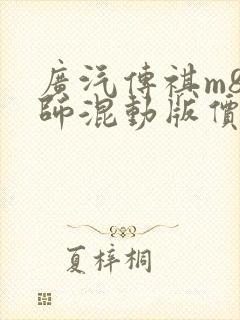 廣汽傳祺m8
師混動版價
夏梓桐